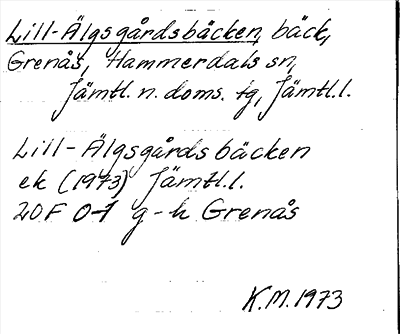 Lill-Älgsgårdsbäcken, bäck,
Grenås, Hammerdals sn,
Jämtl. n. doms. tg, Jämtl. l.
Lill-Älgsgårdsbäcken
ek (1973) Jämtl. l.
20F 0-1 g-h Grenås
K.M. 1973